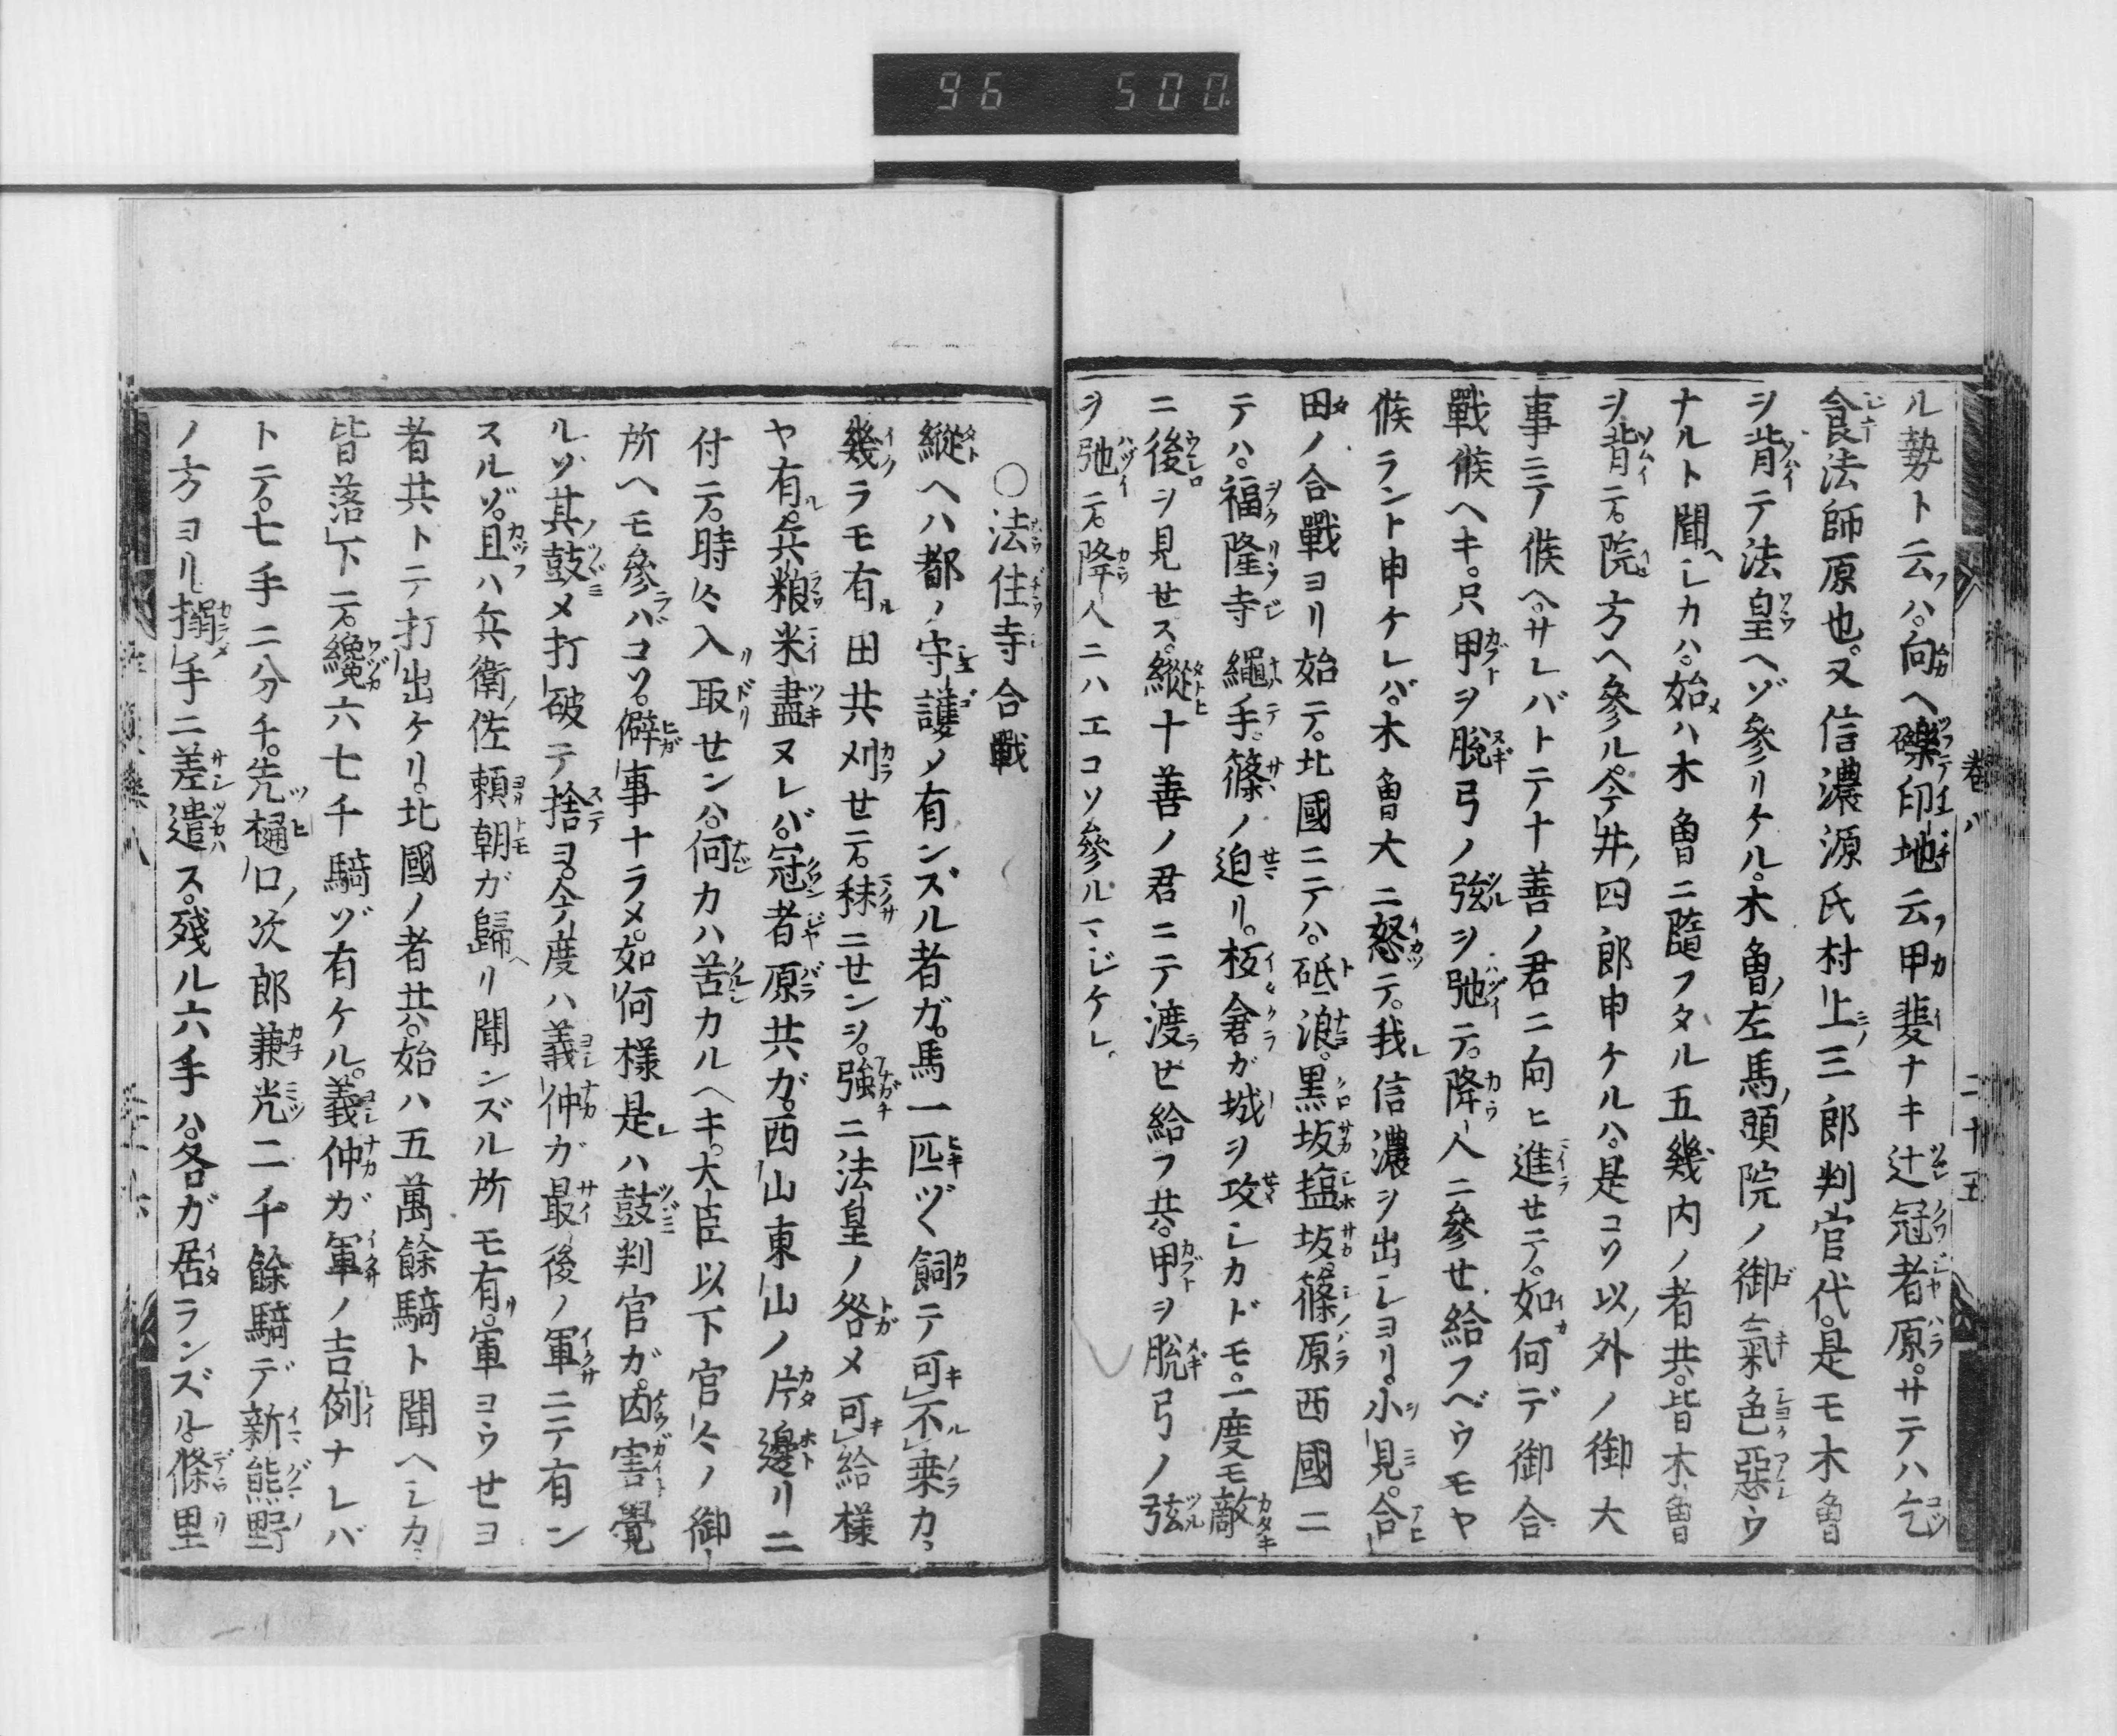 96 500
卷八 二十五
ル勢ト云ハ。向ヘ礫印地云甲斐ナキ辻冠者原。サテハ乞
食法師原也。又信濃源氏村上三郎判官代。是モ木曾
ヲ背テ法皇ヘゾ參リケル。木曾左馬頭院ノ御氣色惡ウ
ナルト聞ヘシカハ。始ハ木曾ニ隨フタル五幾内ノ者共。皆木曾
ヲ背テ。院方ヘ參ル。今井四郎申ケルハ。是コソ以外ノ御大
事ニテ候ヘ。サレバトテ十善ノ君ニ向ヒ進セテ。如何デ御合
戰候ヘキ。只甲ヲ脱弓ノ弦ヲ弛テ。降人ニ參セ給フベウモヤ
候ラント申ケレバ。木曾大ニ怒テ。我信濃ヲ出シヨリ。小見。合
田ノ合戰ヨリ始テ。北國ニテハ。砥浪。黒坂塩坂。篠原西國ニ
テハ。福隆寺繩手。篠ノ迫リ。板倉ガ城ヲ攻シカドモ。一度モ敵
ニ後ヲ見セス。縱十善ノ君ニテ渡ラセ給フ共。甲ヲ脱弓ノ弦
ヲ弛テ。降人ニハエコソ參ルマジケレ。
○法住寺合戰
縱ヘハ都ノ守護メ有ンズル者ガ。馬一匹ヅヽ飼テ可不乗カ。
幾ラモ有ル田共刈セテ。秣ニセンヲ。強ニ法皇ノ咎メ可給樣
ヤ有。兵粮米盡ヌレバ。冠者原共ガ。西山東山ノ片邊リニ
付テ。時々入取センハ。何カハ苦カルヘキ。大臣以下官々ノ御
所ヘモ參ラバコソ。僻事ナラメ。如何樣是ハ鼓判官ガ。凶害覺
ルソ其鼓メ打破テ捨ヨ。今度ハ義仲ガ最後ノ軍ニテ有ン
スルゾ。且ハ兵衛佐頼朝ガ歸リ聞ンズル所モ有。軍ヨウセヨ
者共トテ打出ケリ。北國ノ者共。始ハ五萬餘騎ト聞ヘシカ
皆落下テ。纔六七千騎ゾ有ケル。義仲ガ軍ノ吉例ナレバ
トテ。七手ニ分チ。先樋口次郎兼光二千餘騎デ新熊野
ノ方ヨリ搦手ニ差遣ス。殘ル六手ハ。各ガ居ランズル。條里